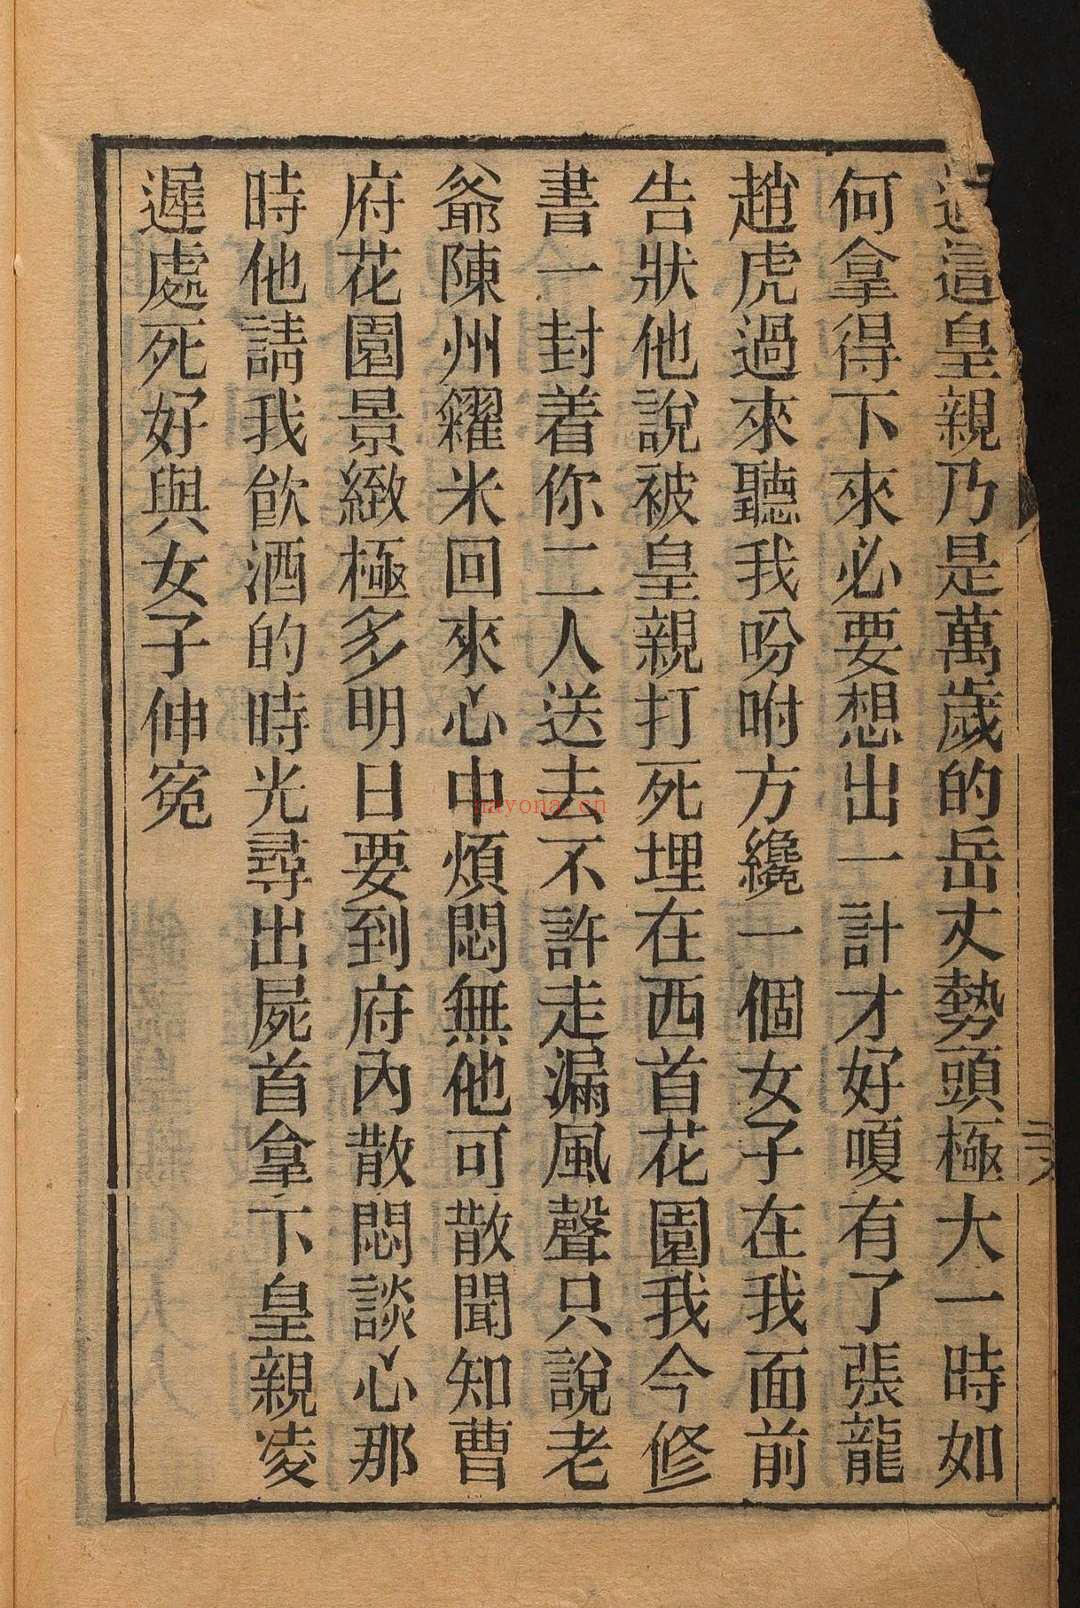 這皇親乃是萬歲的岳丈勢頭極大一時如
何拿得下來必要想出一計才好嗄有了張龍
趙虎過來聽我吩咐方纔一個女子在我面前
告狀他說被皇親打死埋在西首花園我今修
書一封着你二人送去不許走漏風聲只說老
爺陳州糶米回來心中煩悶無他可散聞知曹
府花園景緻極多明日要到府內散悶談心那
時他請我飲酒的時光尋出屍首拿下皇親凌
遲處死好與女子伸冤
nayona.cn